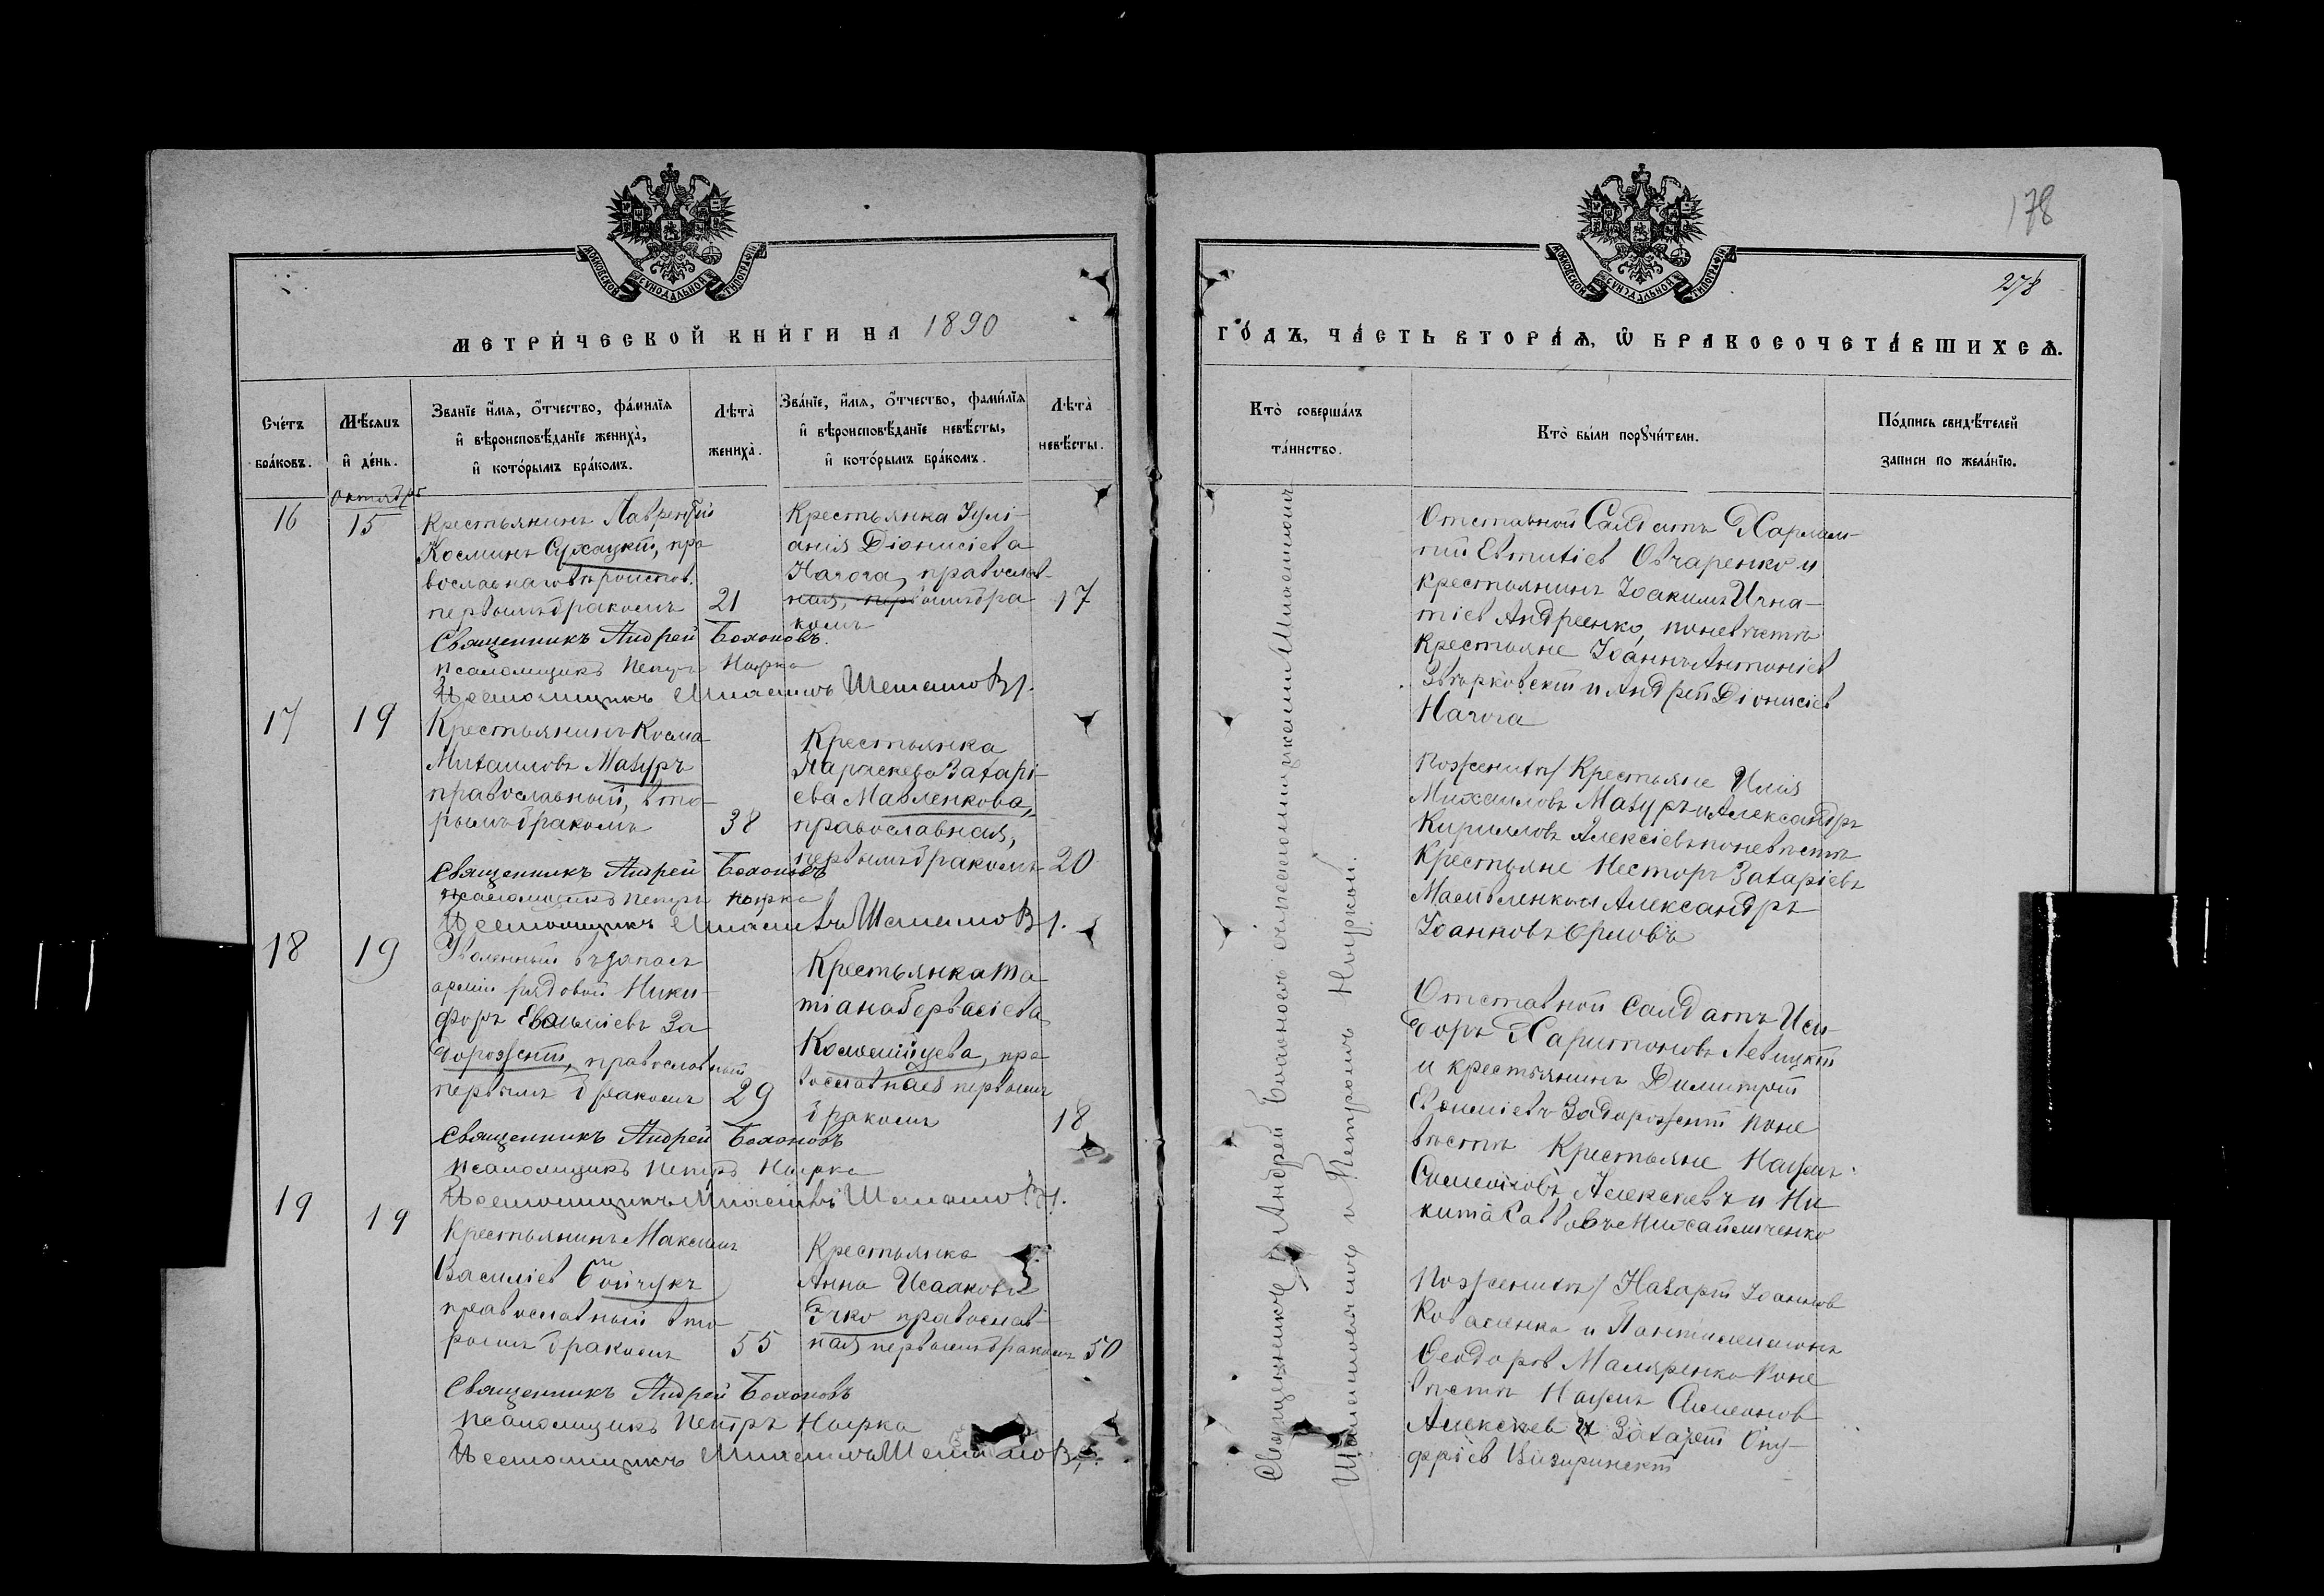 178
278
МОСКОВСКОЙ СѴНОДАЛЬНОЙ ТИПОГРАФІИ
МЕТРИ́ЧЕСКОЙ КНИ́ГИ НА 1890
Сче́тъ бра́ковъ.
Мѣ́сяцъ и҆ де́нь.
Зва́нїе и҆́мѧ, ѻ҆́тчество, фамѵ́лїѧ
и҆ вѣроисповѣ́данїе жениха̀,
и҆ кото́рымъ бра́комъ.
Лѣта̀ жениха̀.
Зва́нїе, и҆́мѧ, ѻ҆́тчество, фамѵ́лїѧ
и҆ вѣроисповѣ́данїе невѣ́сты,
и҆ кото́рымъ бра́комъ.
Лѣта̀ невѣ́сты.
Октябрь
16
15
Крестьянинъ Лаврентій
Косминъ Сухацкій, пра
вославнаго вѣроиспов.
первымъ бракомъ
21
Крестьянка Іулі-
анія Діонисіева
Нагога, православ-
ная, первымъ бра
комъ
17
Священникъ Андрей Бохоновъ.
псаломщикъ Петръ Нырка
Псаломщикъ
17
19
Крестьянинъ Косма
Михаиловъ Мазуръ
православный, вто-
рымъ бракомъ
38
Крестьянка
Параскева Захарі-
ева Мавленкова,
православная,
первымъ бракомъ
20
Священникъ Андрей Бохоновъ
псаломщикъ Петръ Нырка
Псаломщикъ
18
19
Уволенный въ запасъ
арміи рядовой Ники-
форъ Евфиміевъ За
дорожній, православный
первымъ бракомъ
29
Крестьянка Та
тіана Гервасіева
пра
вославная первымъ
бракомъ
18
Священникъ Андрей Бохоновъ
псаломщикъ Петръ Нырка
Псаломщикъ
19
19
Крестьянинъ Максимъ
Василіев Бойчукъ
православный вто
рымъ бракомъ
55
Крестьянка
Анна Исаакова
православ-
ная первымъ бракомъ
50
Священникъ Андрей Бохоновъ
псаломщикъ Петръ Нырка
Псаломщикъ
МОСКОВСКОЙ СѴНОДАЛЬНОЙ ТИПОГРАФІИ
ГО́ДЪ, ЧА́СТЬ ВТОРА́Ѧ, Ѽ БРАКОСОЧЕТА́ВШИХСѦ.
Кто̀ соверша́лъ
та́инство.
Кто̀ бы́ли порꙋчи́тели.
По́дпись свидѣ́телей
за́писи по жела́нїю.
Священникъ Андрей Бохоновъ съ псаломщиками
и Петромъ Ныркой.
Отставной Салдатъ Харлам-
пій Евтихіев Овчаренко и
крестьянинъ Іоакимъ Игна-
тіев Андреенко, по невѣстѣ
Крестьяне Іоаннъ Антоніев
Звѣрковскій и Андрей Діонисіев
Нагога
По женихѣ Крестьяне Илія
Михаиловъ Мазуръ и Александръ
Кирилловъ Алексіевъ по невѣстѣ
Крестьяне Несторъ Захаріевъ
Александръ
Іоанновъ Орловъ
Отставной Салдатъ Иси-
доръ Харитоновъ Левицкій
и крестьянинъ Димитрій
Евфиміевъ Задорожній по не
вѣстѣ Крестьяне Наумъ
Симеоновъ Алексѣевъ и Ни
кита Савовъ Михайличенко
По женихѣ Назарій Іоаннов
Коваленко и Пантилимонъ
Ѳеодоров Маляренко по не
вѣстѣ Наумъ Симеонов
Алексѣев и Захарій Ону-
фріев